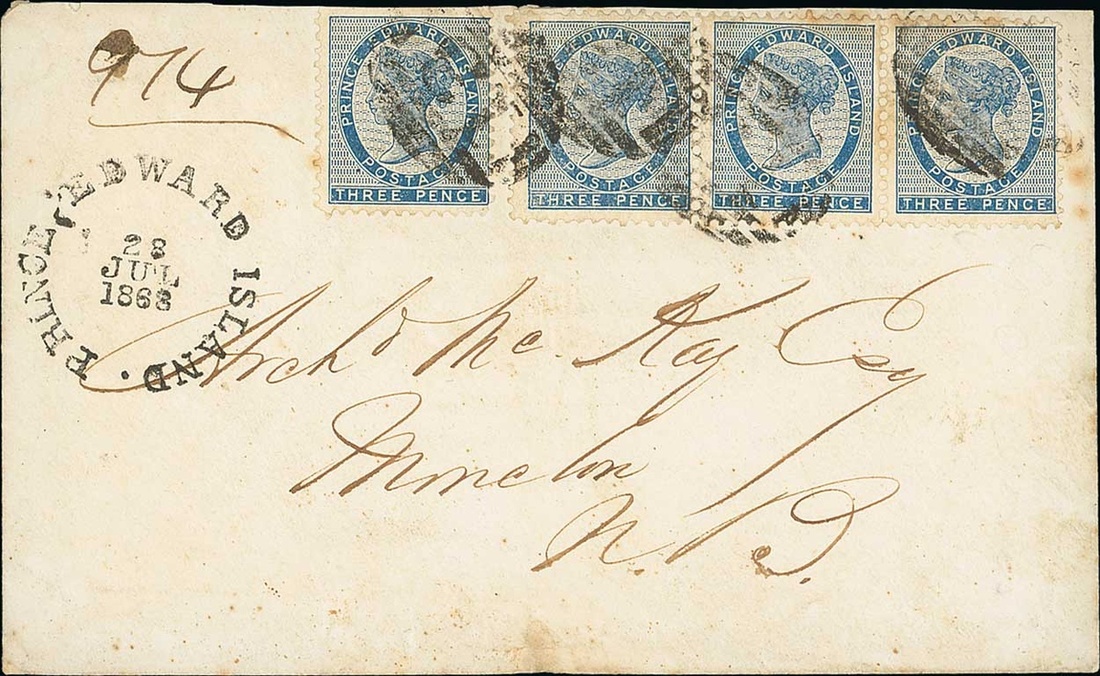 974
PRINCE EDWARD ISLAND POSTAGE
THREE PENCE
PRINCE EDWARD ISLAND POSTAGE
THREE PENCE
PRINCE EDWARD ISLAND POSTAGE
THREE PENCE
PRINCE EDWARD ISLAND POSTAGE
THREE PENCE
PRINCE EDWARD ISLAND.
28
JUL
1868
Archd Mc Kay Esq
Moncton
N.B.